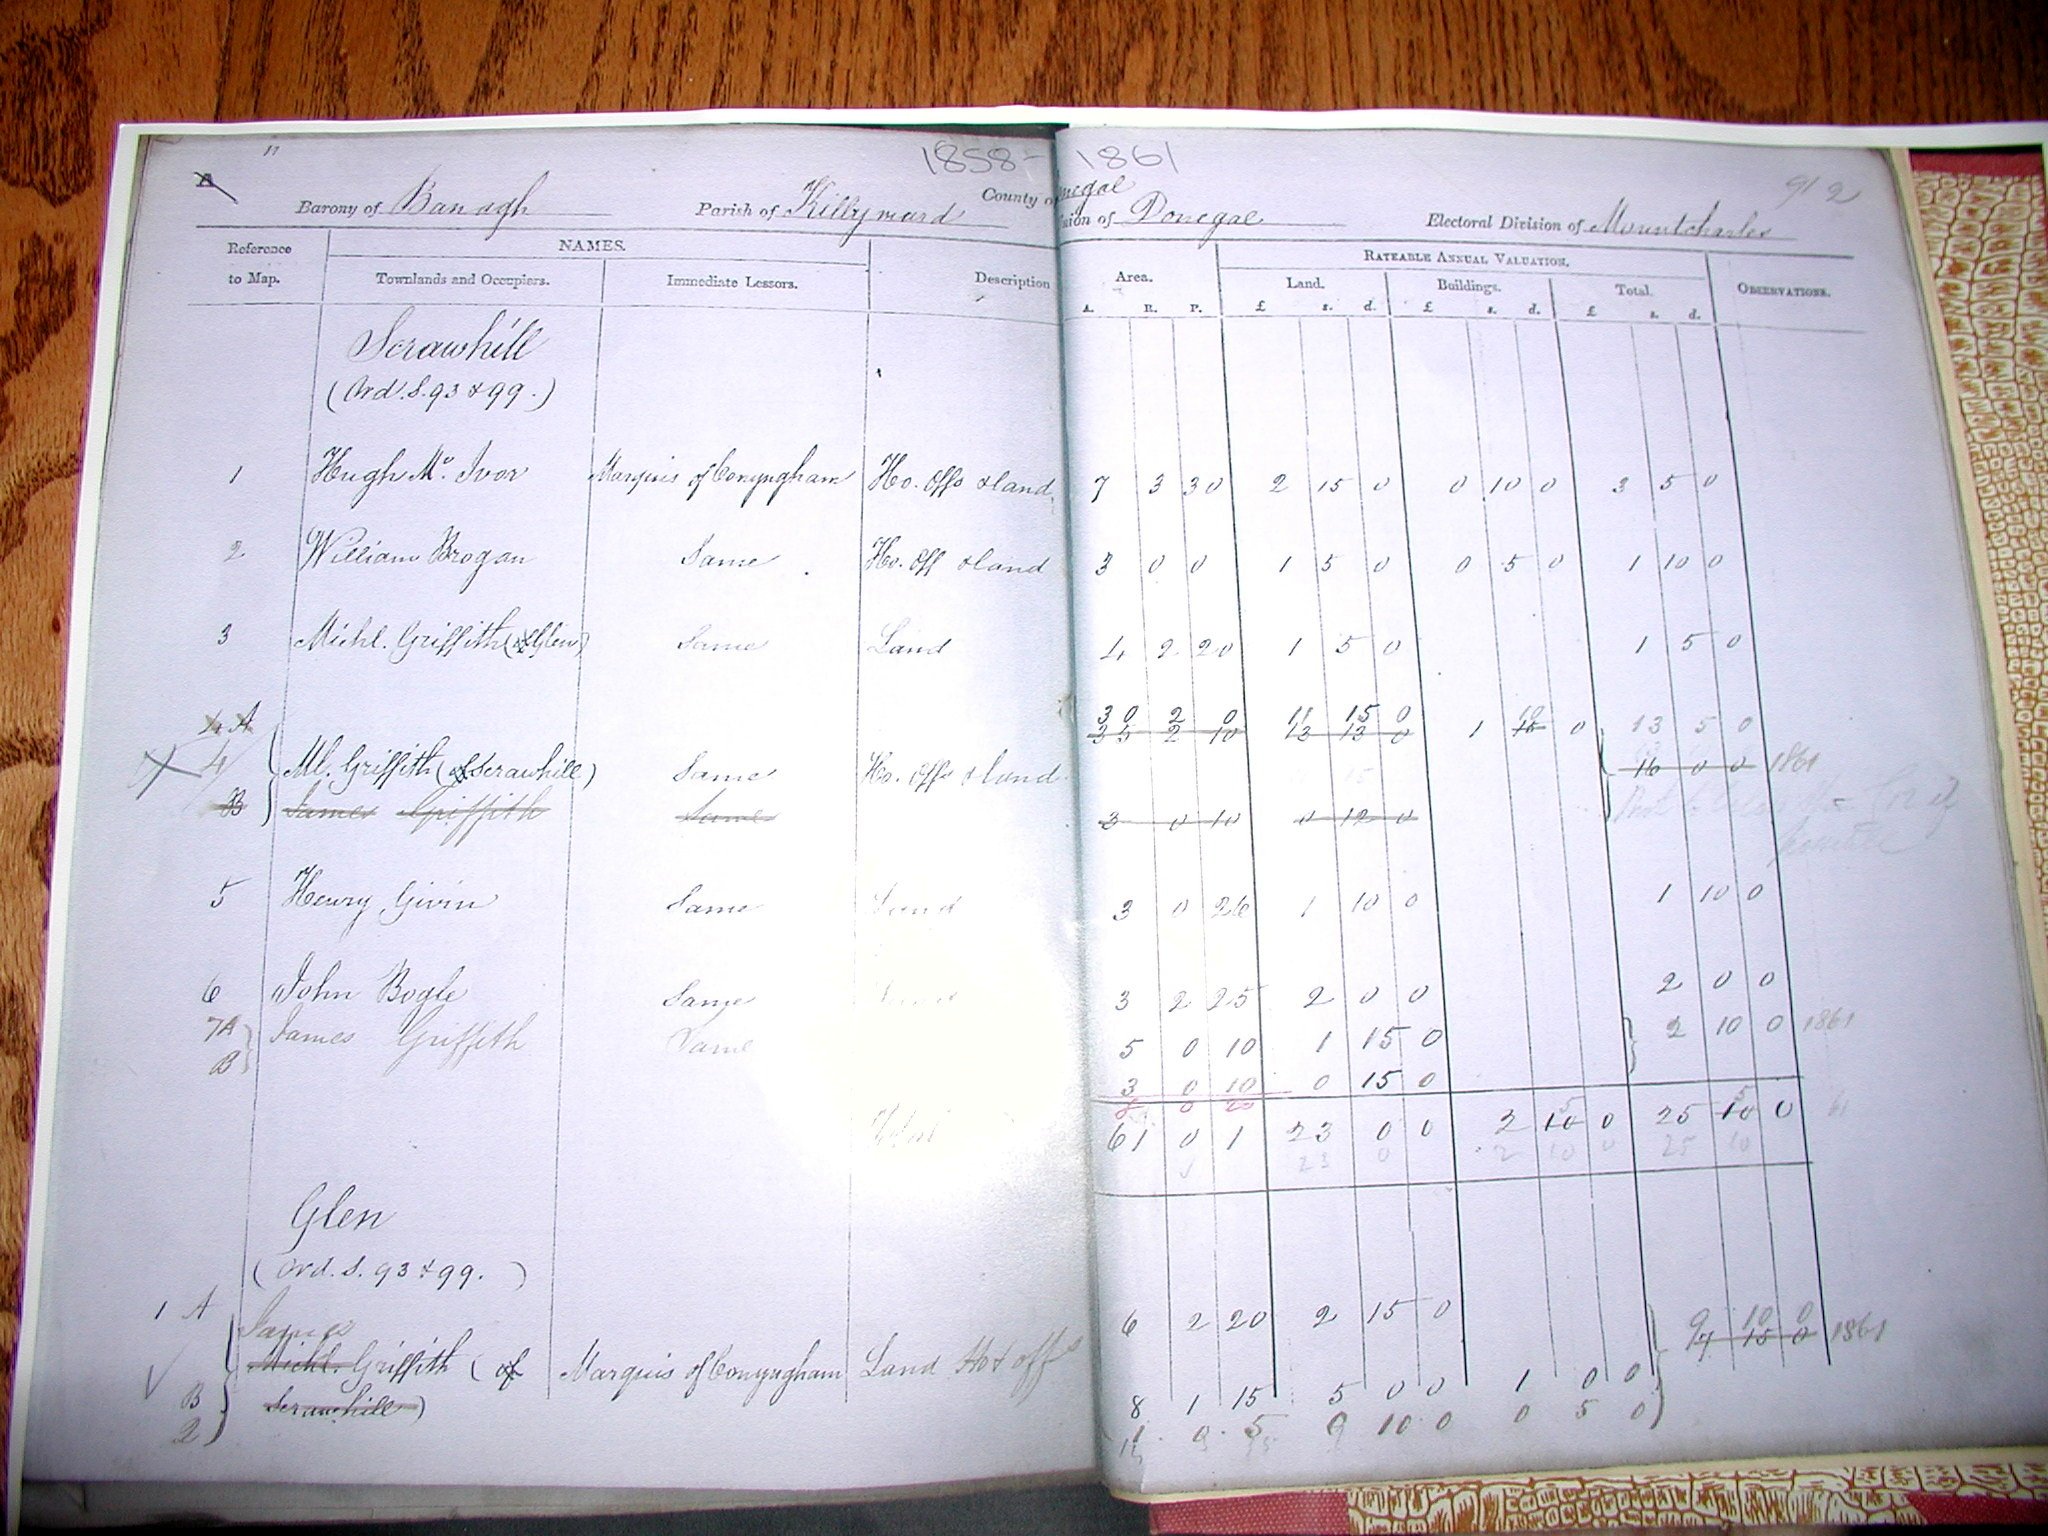 1858-1861
A
912
Barony of Banagh Parish of Killymard County of Donegal Union of Donegal Electoral Division of Mountcharles
Reference to Map. NAMES. Description Area. RATEABLE ANNUAL VALUATION. OBSERVATIONS.
Townlands and Occupiers. Immediate Lessors. Land. Buildings. Total.
A. R. P. £ s. d. £ s. d. £ s. d.
Scrawhill
(Ord. S. 93 & 99.)
1 Hugh Mc. Ivor Marquis of Conyngham Ho. Offs & land 7 3 30 2 15 0 0 10 0 3 5 0
2 William Brogan Same Ho. Off & land 3 0 0 1 5 0 0 5 0 1 10 0
3 Michl. Griffith (of Glen) Same Land 4 2 20 1 5 0 1 5 0
4 A 30 2 0 11 15 0 10 13 5 0
35 2 10 13 13 0 1 15 0
4 Ml. Griffith (of Scrawhill) Same Ho. Offs & land 16 0 0 1861
B James Griffith Same 3 0 10 0 12 0
5 Henry Givin Same Land 3 0 26 1 10 0 1 10 0
6 John Bogle Same Land 3 2 25 2 0 0 2 0 0
7A James Griffith Same 5 0 10 1 15 0 2 10 0 1861
B 3 0 10 0 15 0
8 0 20
Total 61 0 1 23 0 0 2 10 5 0 25 10 5 0 61
23 0 2 10 0 25 10
Glen
(Ord. S. 93 & 99.)
1 A James 6 2 20 2 15 0 9 10 0
Michl. Griffith (of Marquis of Conyngham Land Ho & offs 7 15 0 1861
B Scrawhill) 8 1 15 5 0 0 1 0 0
2 1 0 5 0 10 0 0 5 0